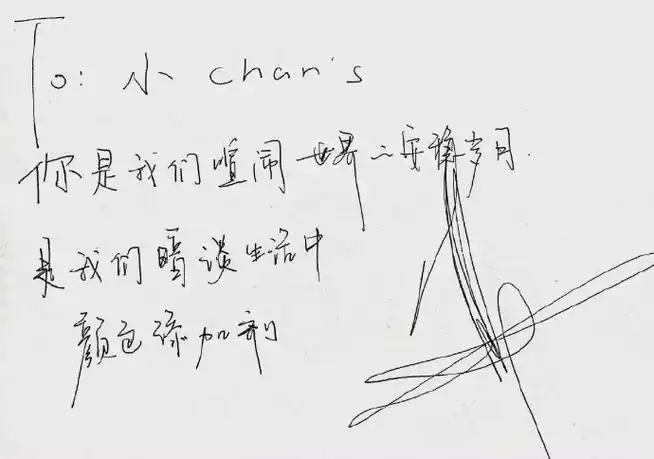 To: 小 chan's
你是我们喧闹世界二安稳岁月.
是我们暗淡生活中
颜色添加剂